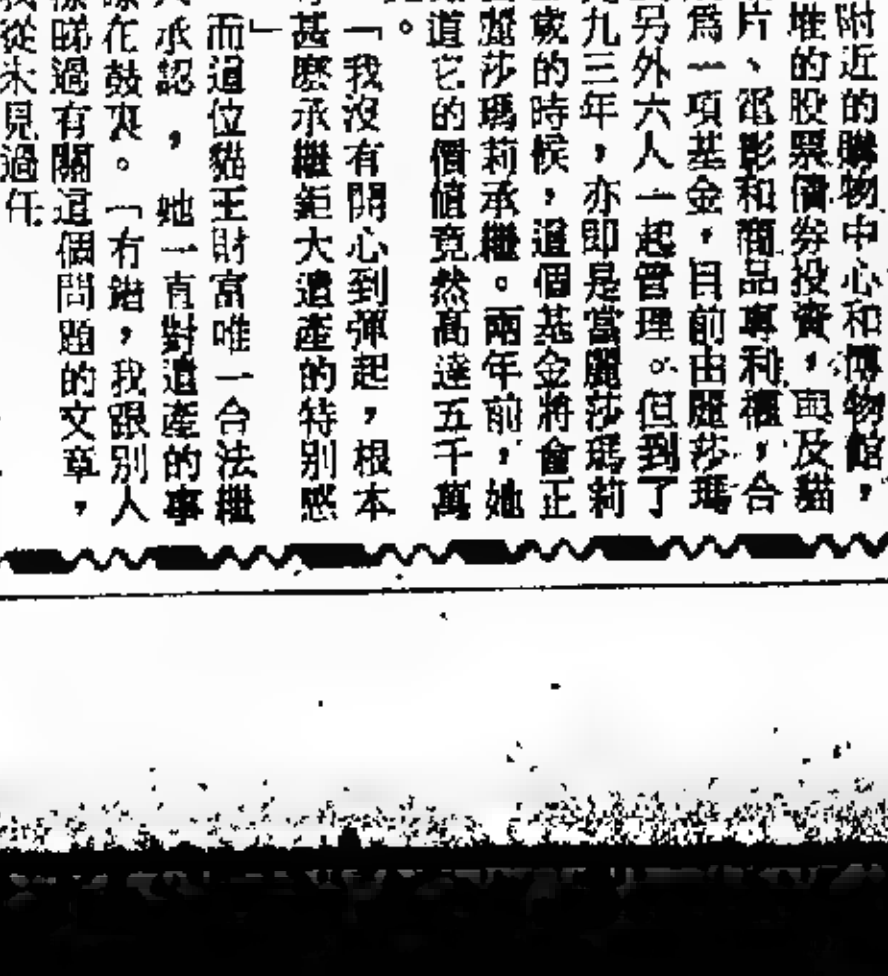 附近的購物中心和博物館，
堆的股票債券投資，與及貓
片、電影和商品專利權，合
為一項基金，目前由麗莎瑪
另外六人一起管理。但到了
九三年，亦即是當麗莎瑪莉
歲的時候，這個基金將會正
麗莎瑪莉承繼。兩年前，她
道它的價值竟然高達五千萬
。
「我沒有開心到彈起，根本
甚麼承繼鉅大遺產的特別感
」
而這位貓王財富唯一合法繼
承認，她一直對遺產的事
在鼓裏。「冇錯，我跟別人
睇過有關這個問題的文章，
從未見過任